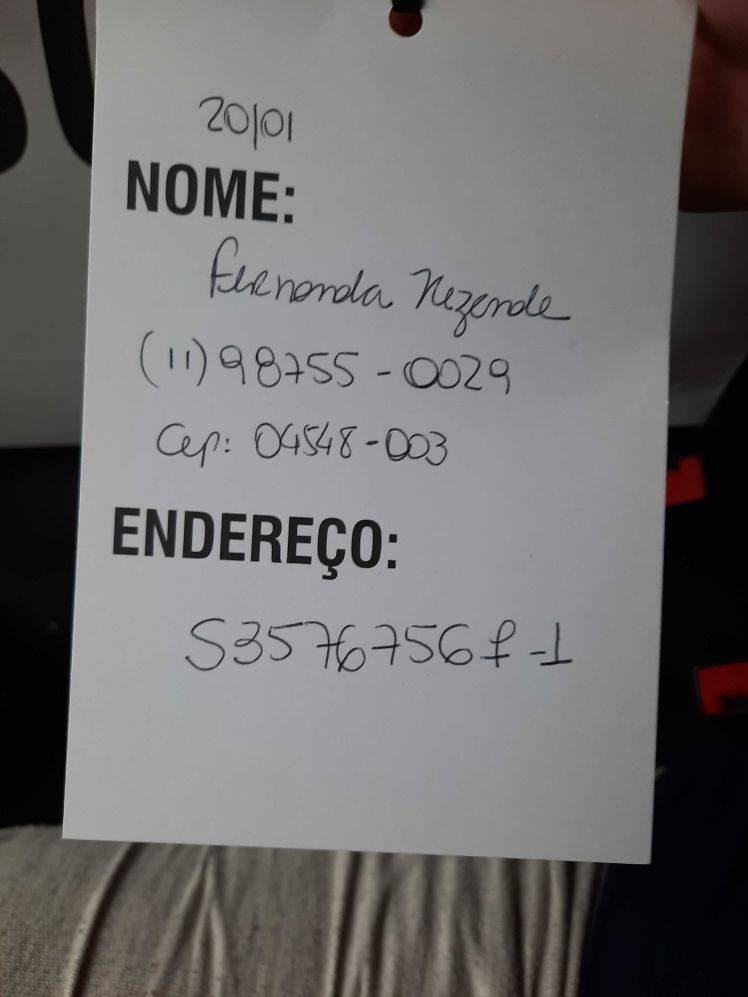 20/01
NOME:
Fernanda Rezende
(11) 98755-0029
Cep: 04548-003
ENDEREÇO:
S3576756f-1